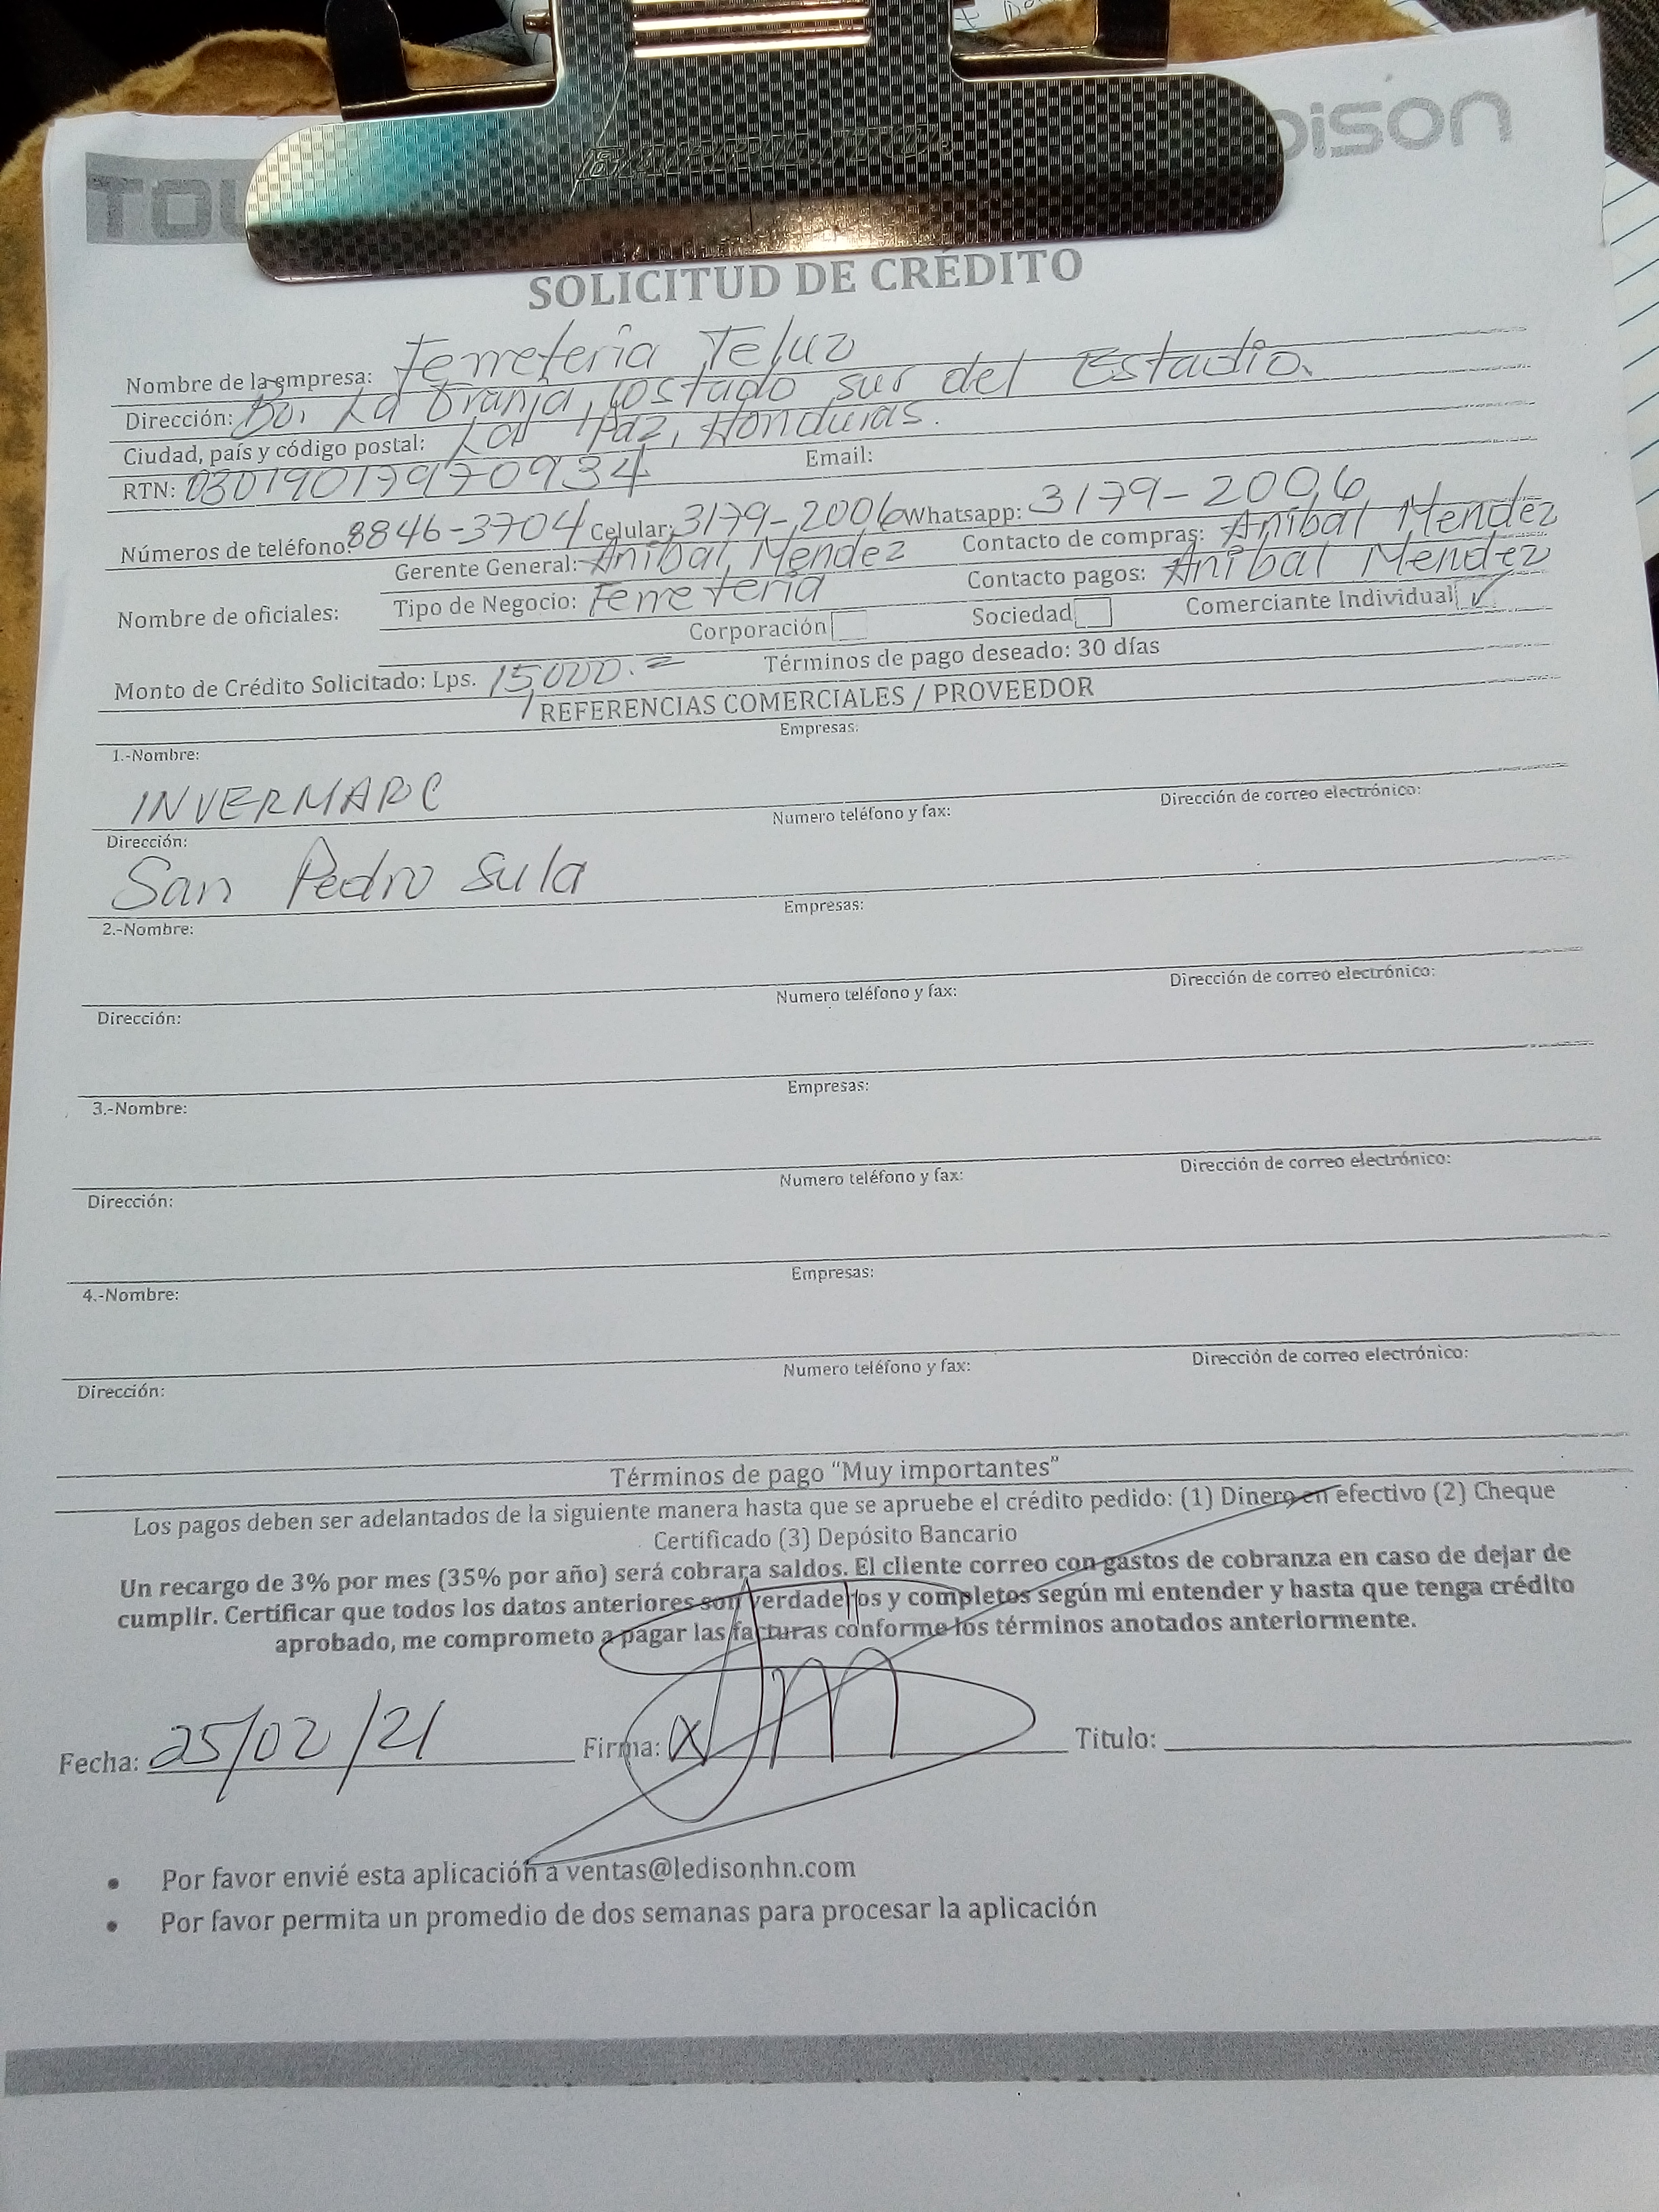 TOU
DISON
SOLICITUD DE CRÉDITO
Nombre de la empresa: Ferreteria Teluz
Dirección: Bo. La Granja, Costado sur del Estadio.
Ciudad, país y código postal: La Paz, Honduras.
RTN: Email:
Números de teléfono: 8846-3704 Celular: 3179-2006 Whatsapp: 3179-2006
Gerente General: Anibal Mendez Contacto de compras: Anibal Mendez
Nombre de oficiales: Tipo de Negocio: Ferreteria Contacto pagos: Anibal Mendez
Corporación Sociedad Comerciante Individual ✓
Monto de Crédito Solicitado: Lps. 15,000.= Términos de pago deseado: 30 días
REFERENCIAS COMERCIALES / PROVEEDOR
1.-Nombre: Empresas:
INVERMARC
Dirección: Numero teléfono y fax: Dirección de correo electrónico:
San Pedro Sula
2.-Nombre: Empresas:
Dirección: Numero teléfono y fax: Dirección de correo electrónico:
3.-Nombre: Empresas:
Dirección: Numero teléfono y fax: Dirección de correo electrónico:
4.-Nombre: Empresas:
Dirección: Numero teléfono y fax: Dirección de correo electrónico:
Términos de pago “Muy importantes”
Los pagos deben ser adelantados de la siguiente manera hasta que se apruebe el crédito pedido: (1) Dinero en efectivo (2) Cheque
Certificado (3) Depósito Bancario
Un recargo de 3% por mes (35% por año) será cobrara saldos. El cliente correo con gastos de cobranza en caso de dejar de
cumplir. Certificar que todos los datos anteriores son verdaderos y completos según mi entender y hasta que tenga crédito
aprobado, me comprometo a pagar las facturas conforme los términos anotados anteriormente.
Fecha: 25/02/21 Firma: X Titulo:
• Por favor envié esta aplicación a ventas@ledisonhn.com
• Por favor permita un promedio de dos semanas para procesar la aplicación